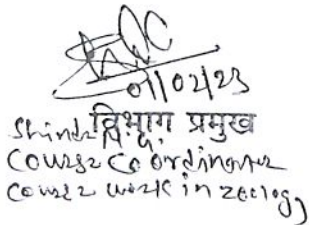 01/02/23
विभाग प्रमुख
Course Coordinator
Course work in Zoology